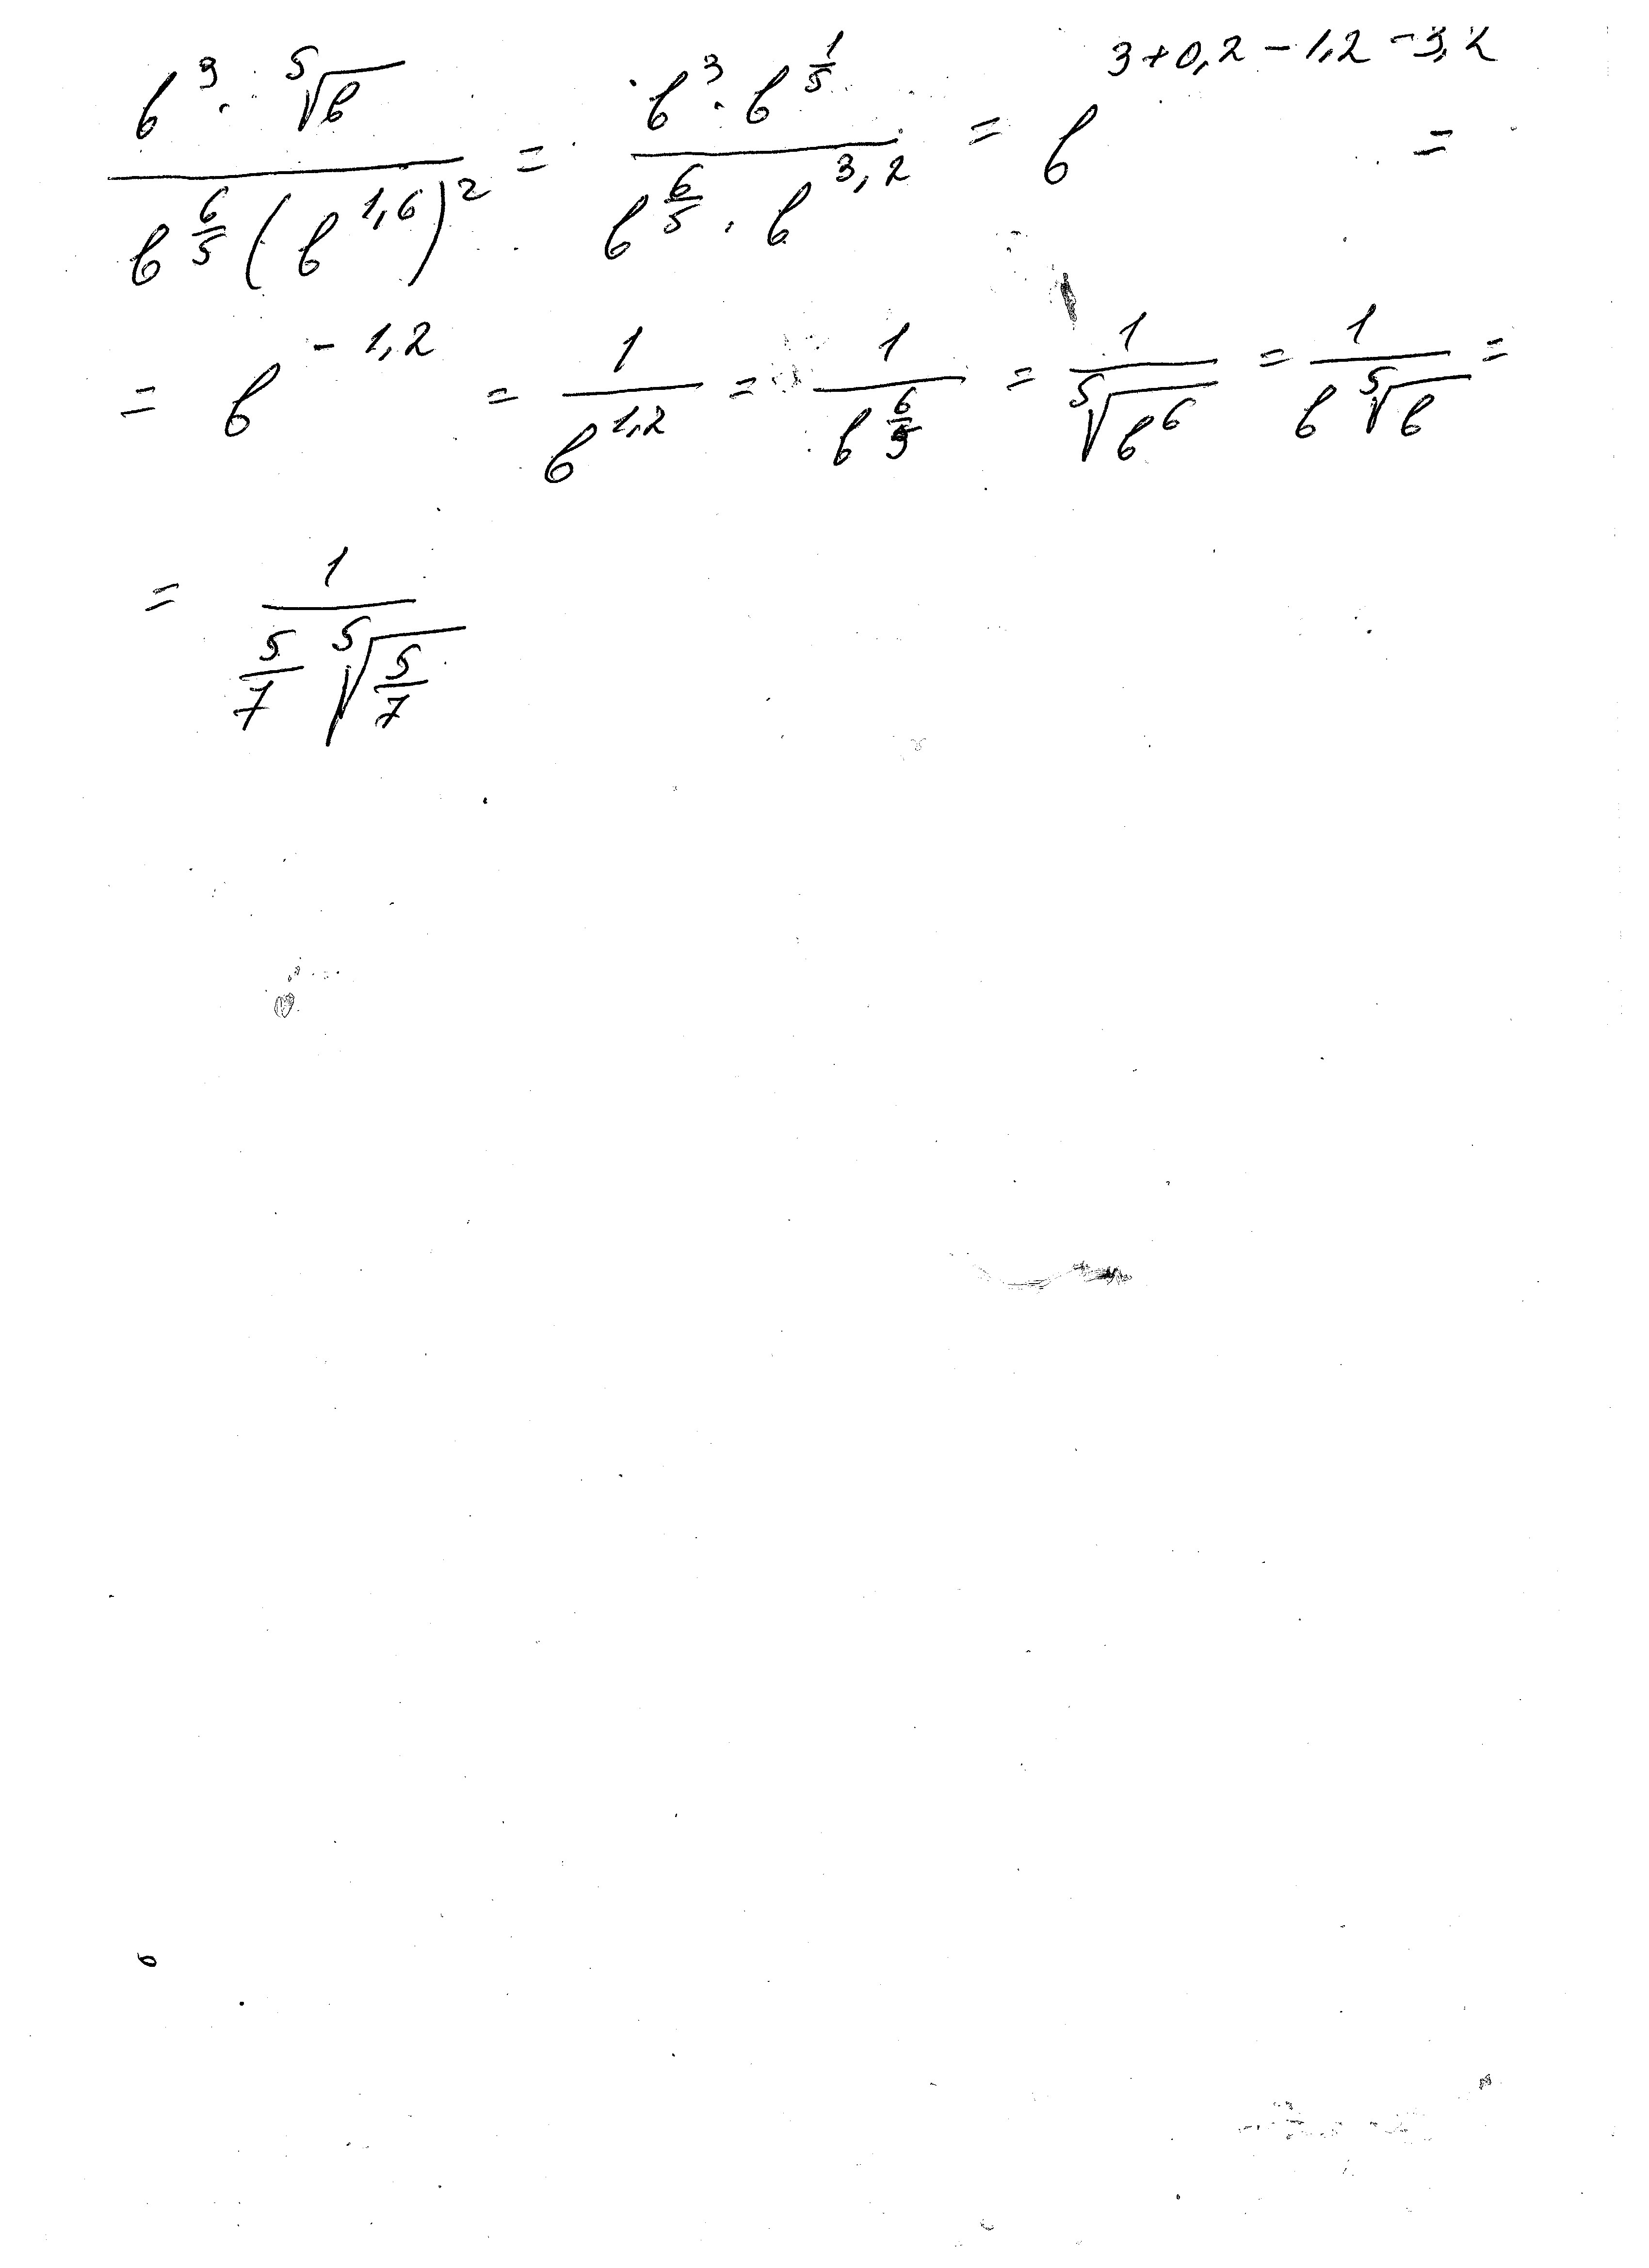 b³ · ⁵√b / (b^(6/5) (b^(1,6))²) = b³ · b^(1/5) / (b^(6/5) · b^(3,2)) = b^(3+0,2−1,2−3,2) =
= b^(−1,2) = 1 / b^(1,2) = 1 / b^(6/5) = 1 / ⁵√(b⁶) = 1 / (b ⁵√b) =
= 1 / (5/7 ⁵√(5/7))